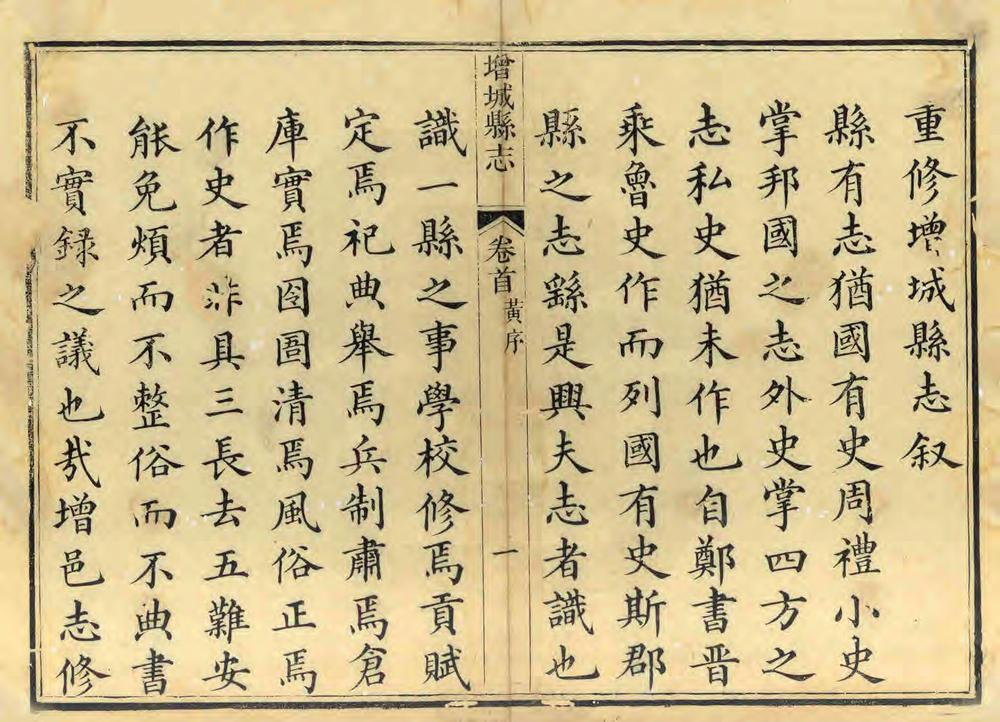 重修增城縣志叙
縣有志猶國有史周禮小史
掌邦國之志外史掌四方之
志私史猶未作也自鄭書晉
乘魯史作而列國有史斯郡
縣之志繇是興夫志者識也
增城縣志
卷首
黃序
一
識一縣之事學校修焉貢賦
定焉祀典舉焉兵制肅焉倉
庫實焉囹圄清焉風俗正焉
作史者非具三長去五難安
能免煩而不整俗而不典書
不實録之議也哉增邑志修